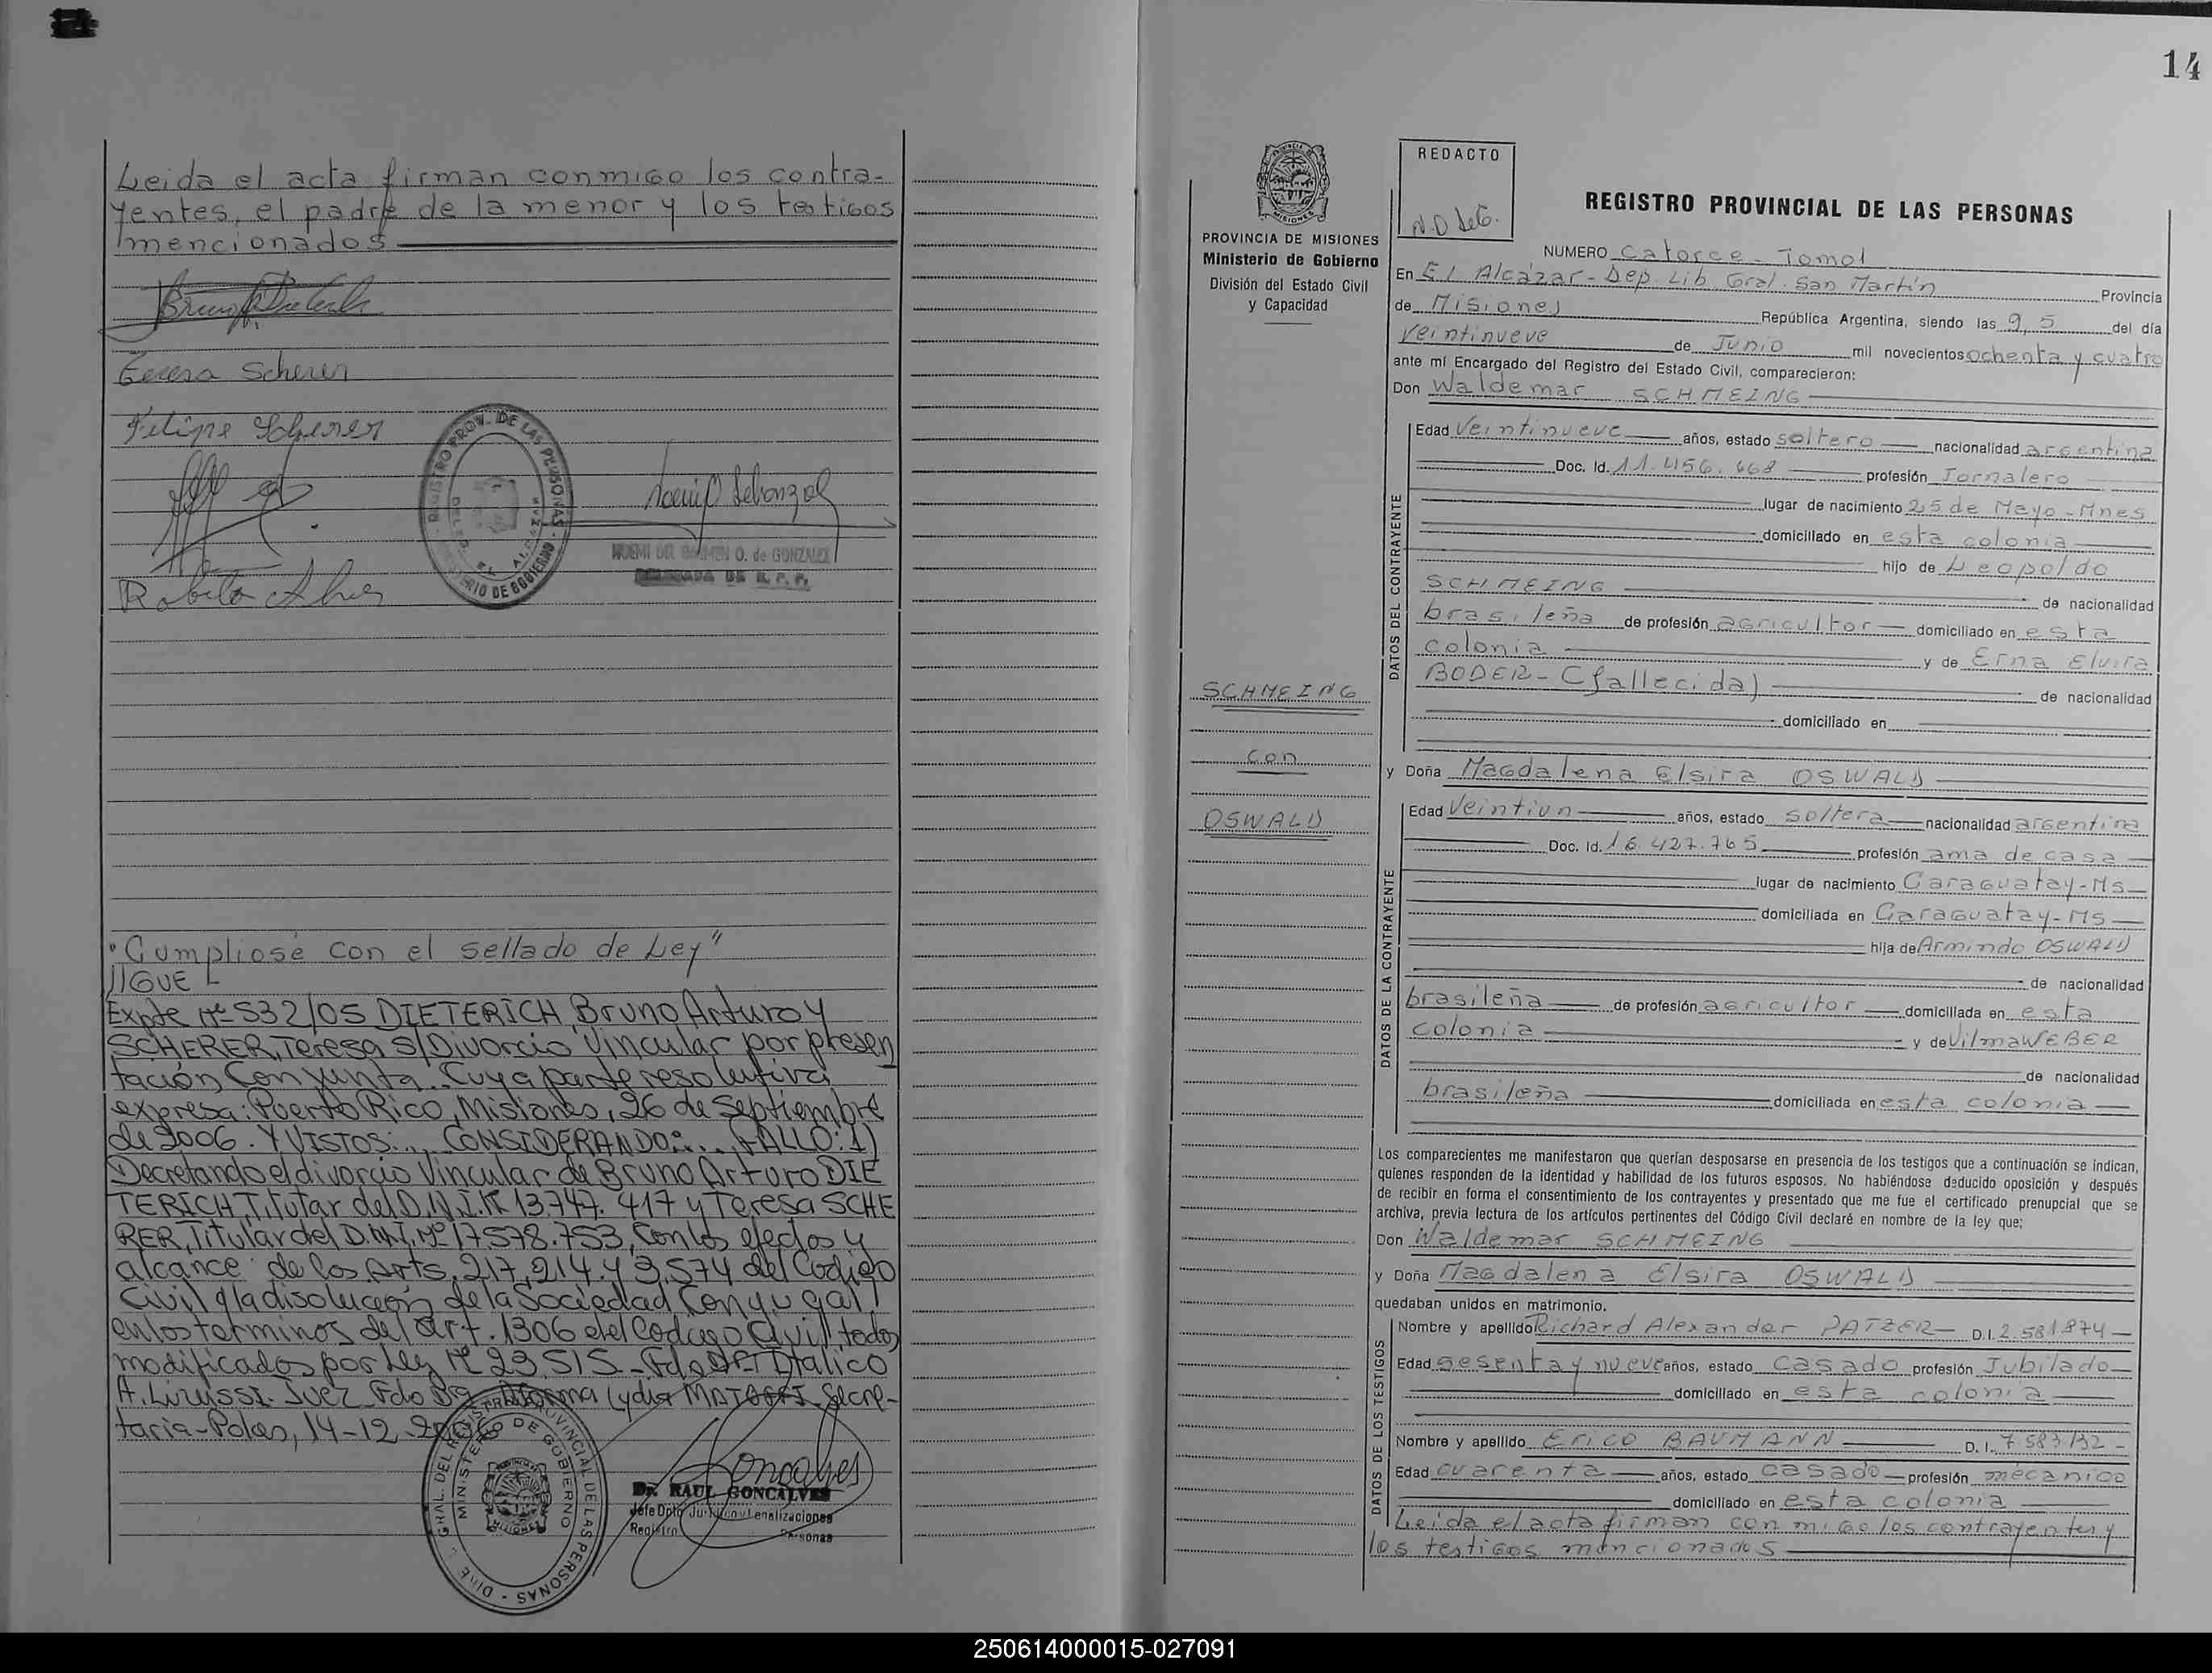 Leida el acta firman conmigo los contra-
yentes, el padre de la menor y los testigos
mencionados
Teresa Scherer
Felipe Scherer
REGISTRO PROV. DE LAS PERSONAS
MINISTERIO DE GOBIERNO
EL ALCAZAR
NOEMI DEL CARMEN O. de GONZALEZ
DELEGADA DE R. P. P.
"Cumpliose con el sellado de Ley"
SIGUE
Expte Nº 532/05 DIETERICH, Bruno Arturo y
SCHERER, Teresa S/Divorcio Vincular por presen
tación Conjunta. Cuya parte resolutiva
expresa: Puerto Rico, Misiones, 26 de Septiembre
de 2006. Y VISTOS:... CONSIDERANDO:... FALLO: 1)
Decretando el divorcio Vincular de Bruno Arturo DIE
TERICH, Titular del D.N.I. Nº 13.747.417 y Teresa SCHE
RER, Titular del D.N.I. Nº 17.578.753, con los efectos y
alcance de los Arts. 217, 214 y 3.574 del Codigo
Civil y la disolucion de la Sociedad Conyugal
en los terminos del art. 1306 del Codigo Civil todos
modificados por Ley Nº 23.515.- Fdo Italico
Juez Fdo Norma Lydia Secre-
taria-Pdas, 14-12-
DIRE. GRAL. DEL REGISTRO PROVINCIAL DE LAS PERSONAS
MINISTERIO DE GOBIERNO
MISIONES
Dr. RAUL GONCALVES
Jefe Dpto Juridico y Legalizaciones
Registro Personas
14
PROVINCIA DE MISIONES
Ministerio de Gobierno
División del Estado Civil
y Capacidad
REDACTO
REGISTRO PROVINCIAL DE LAS PERSONAS
NUMERO Catorce - Tomo I
En El Alcázar - Dep. Lib. Gral. San Martín Provincia
de Misiones República Argentina, siendo las 9,5 del día
Veintinueve de Junio mil novecientos ochenta y cuatro
ante mí Encargado del Registro del Estado Civil, comparecieron:
Don Waldemar SCHMEING
DATOS DEL CONTRAYENTE
Edad Veintinueve años, estado soltero nacionalidad argentina
Doc. Id. 11.456.468 profesión Jornalero
lugar de nacimiento 25 de Mayo - Mnes
domiciliado en esta colonia
hijo de Leopoldo
SCHMEING de nacionalidad
brasileña de profesión agricultor domiciliado en esta
colonia y de Erna Elvira
BODER - (fallecida) de nacionalidad
domiciliado en
SCHMEING
con
OSWALD
y Doña Magdalena Elsira OSWALD
DATOS DE LA CONTRAYENTE
Edad Veintiun años, estado soltera nacionalidad argentina
Doc. Id. 16.427.765 profesión ama de casa
lugar de nacimiento Caraguatay-Ms
domiciliada en Caraguatay-Ms
hija de Armindo OSWALD
de nacionalidad
brasileña de profesión agricultor domiciliada en esta
colonia y de Vilma WEBER
de nacionalidad
brasileña domiciliada en esta colonia
Los comparecientes me manifestaron que querían desposarse en presencia de los testigos que a continuación se indican,
quienes responden de la identidad y habilidad de los futuros esposos. No habiéndose deducido oposición y después
de recibir en forma el consentimiento de los contrayentes y presentado que me fue el certificado prenupcial que se
archiva, previa lectura de los artículos pertinentes del Código Civil declaré en nombre de la ley que:
Don Waldemar SCHMEING
y Doña Magdalena Elsira OSWALD
quedaban unidos en matrimonio.
DATOS DE LOS TESTIGOS
Nombre y apellido Richard Alexander PATZER D.I. 2.581.874
Edad sesenta y nueve años, estado casado profesión Jubilado
domiciliado en esta colonia
Nombre y apellido Erico BAUMANN D.I. 7.583.132
Edad cuarenta años, estado casado profesión mecanico
domiciliado en esta colonia
Leida el acta firman conmigo los contrayentes y
los testigos mencionados
250614000015-027091